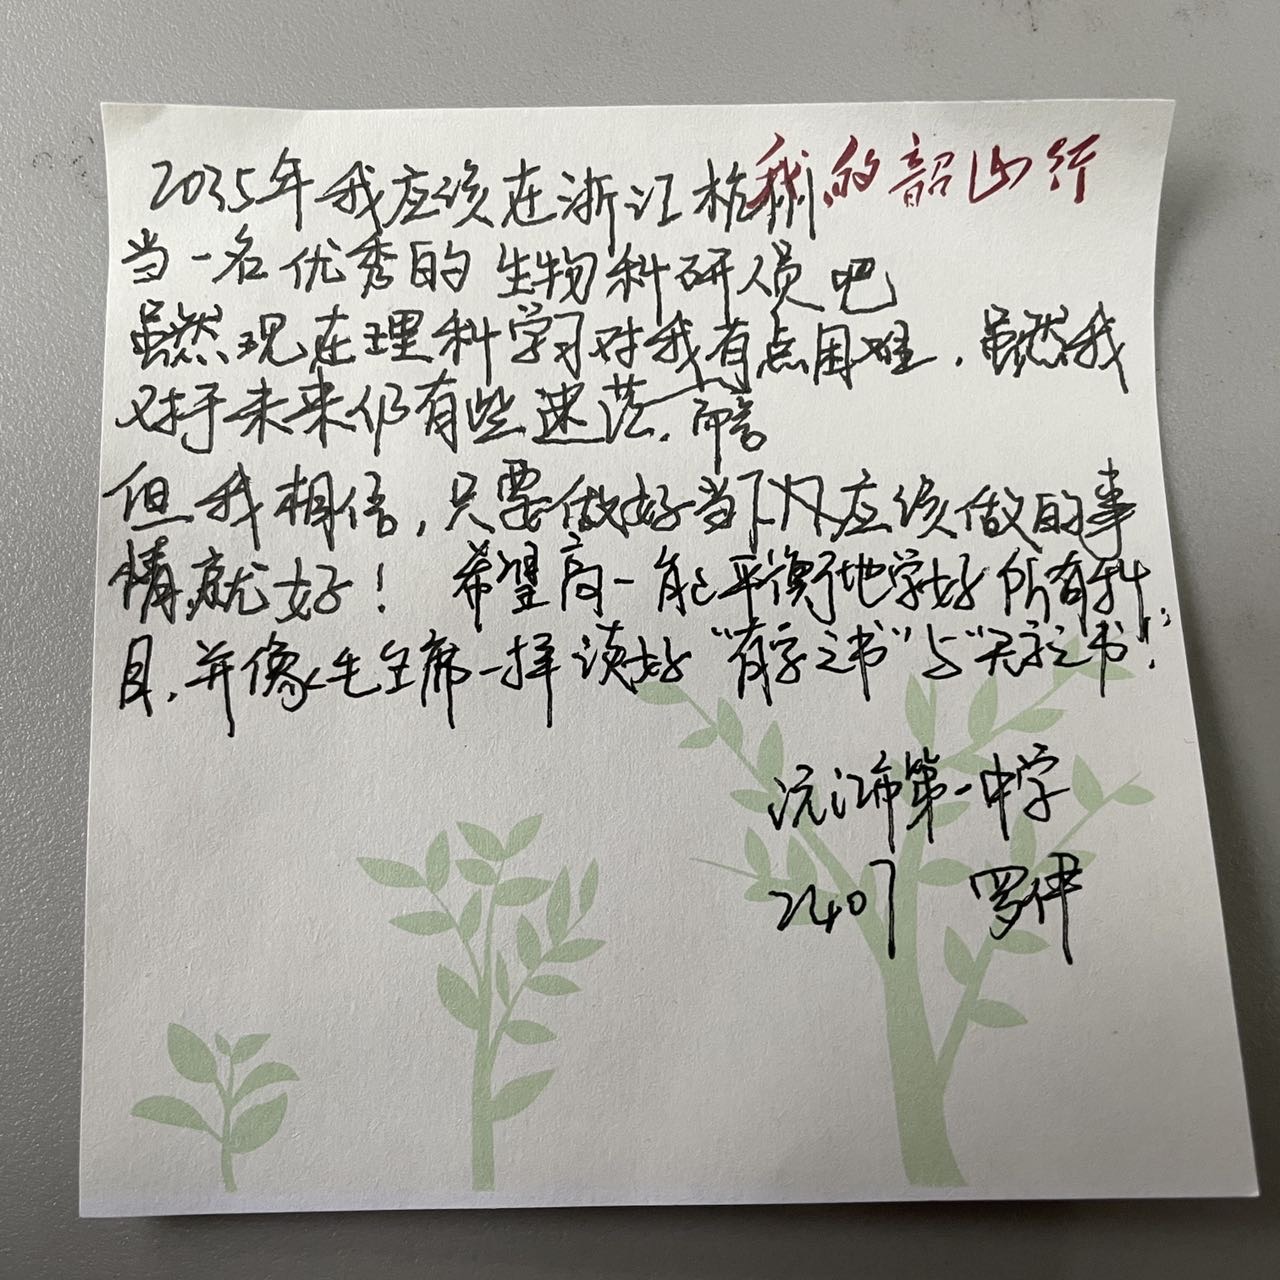 2035年我应该在浙江杭州
我的韶山行
当一名优秀的生物科研人员吧
虽然现在理科学习对我有点困难，虽然我
对于未来仍有些迷茫。
但我相信，只要做好当下应该做的事
情就好！ 希望高一能平衡地学好所有科
目，并像毛主席一样读好“有字之书”与“无字之书”！
沅江市第一中学
2407 罗伊